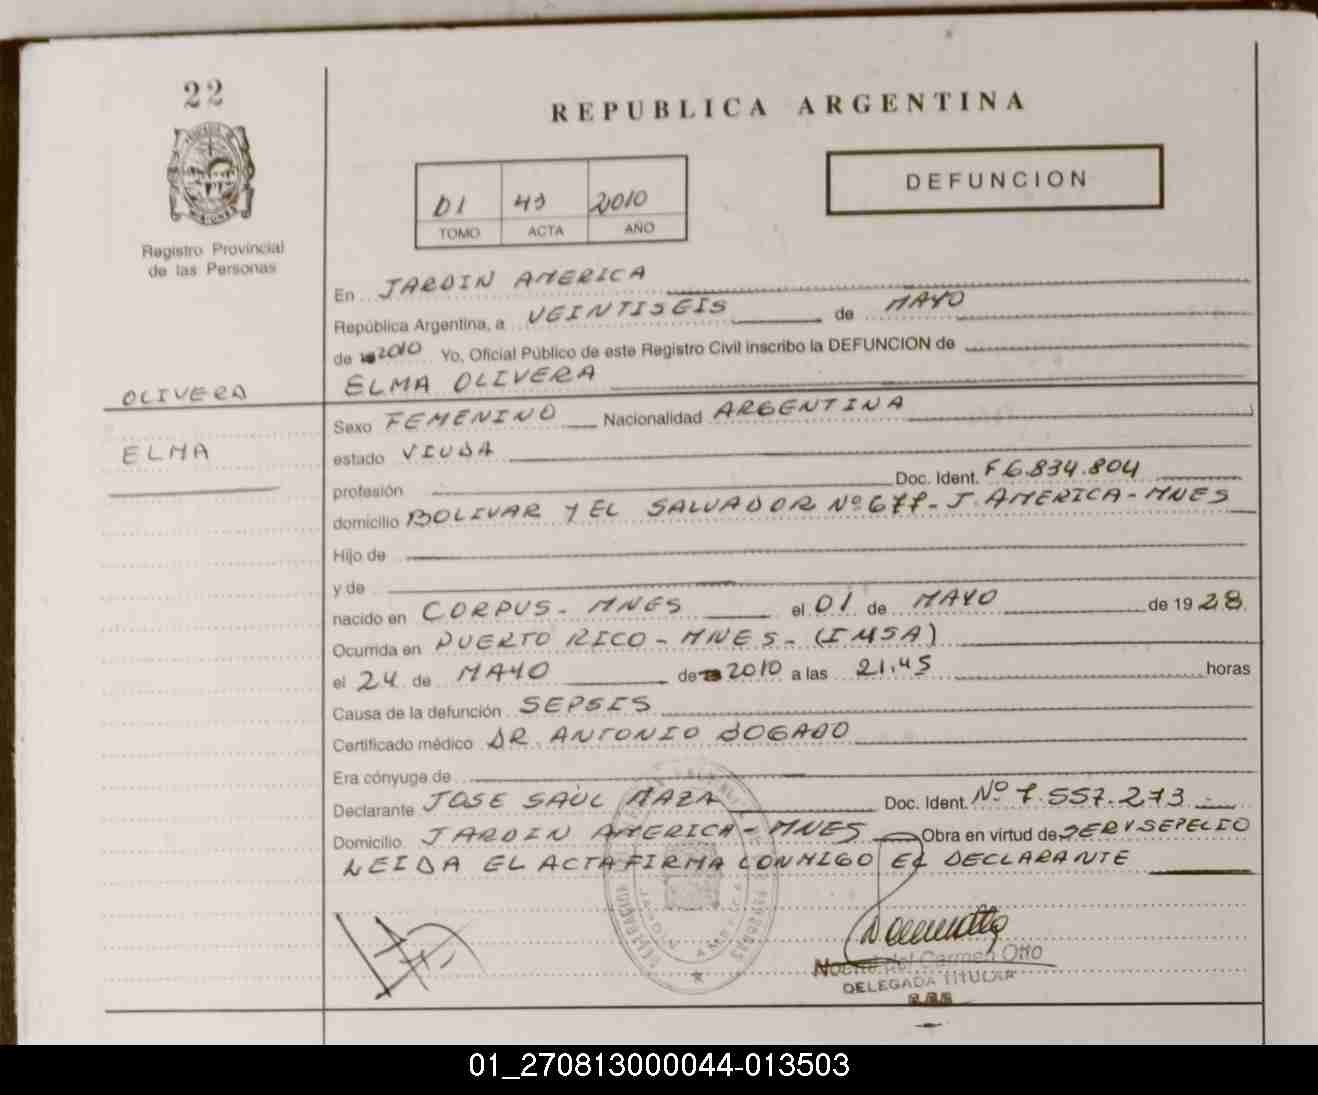 22
REPUBLICA ARGENTINA
DEFUNCION
01 43 2010
TOMO ACTA AÑO
Registro Provincial
de las Personas
En JARDIN AMERICA
República Argentina, a VEINTISEIS de MAYO
de 2010 Yo, Oficial Público de este Registro Civil inscribo la DEFUNCION de
ELMA OLIVERA
OLIVERA
ELMA
Sexo FEMENINO Nacionalidad ARGENTINA
estado VIUDA
profesión Doc. Ident. F 6.834.804
domicilio BOLIVAR Y EL SALVADOR Nº 677- J. AMERICA - MNES
Hijo de
y de
nacido en CORPUS - MNES el 01 de MAYO de 1928
Ocurrida en PUERTO RICO - MNES - (IMSA)
el 24 de MAYO de 2010 a las 21.45 horas
Causa de la defunción SEPSIS
Certificado médico DR. ANTONIO BOGADO
Era cónyuge de
Declarante JOSE SAUL MAZA Doc. Ident. Nº 7.557.273
Domicilio JARDIN AMERICA - MNES Obra en virtud de SERV SEPELIO
LEIDA EL ACTA FIRMA CONMIGO EL DECLARANTE
del Carmen Otto
DELEGADA TITULAR
01_270813000044-013503